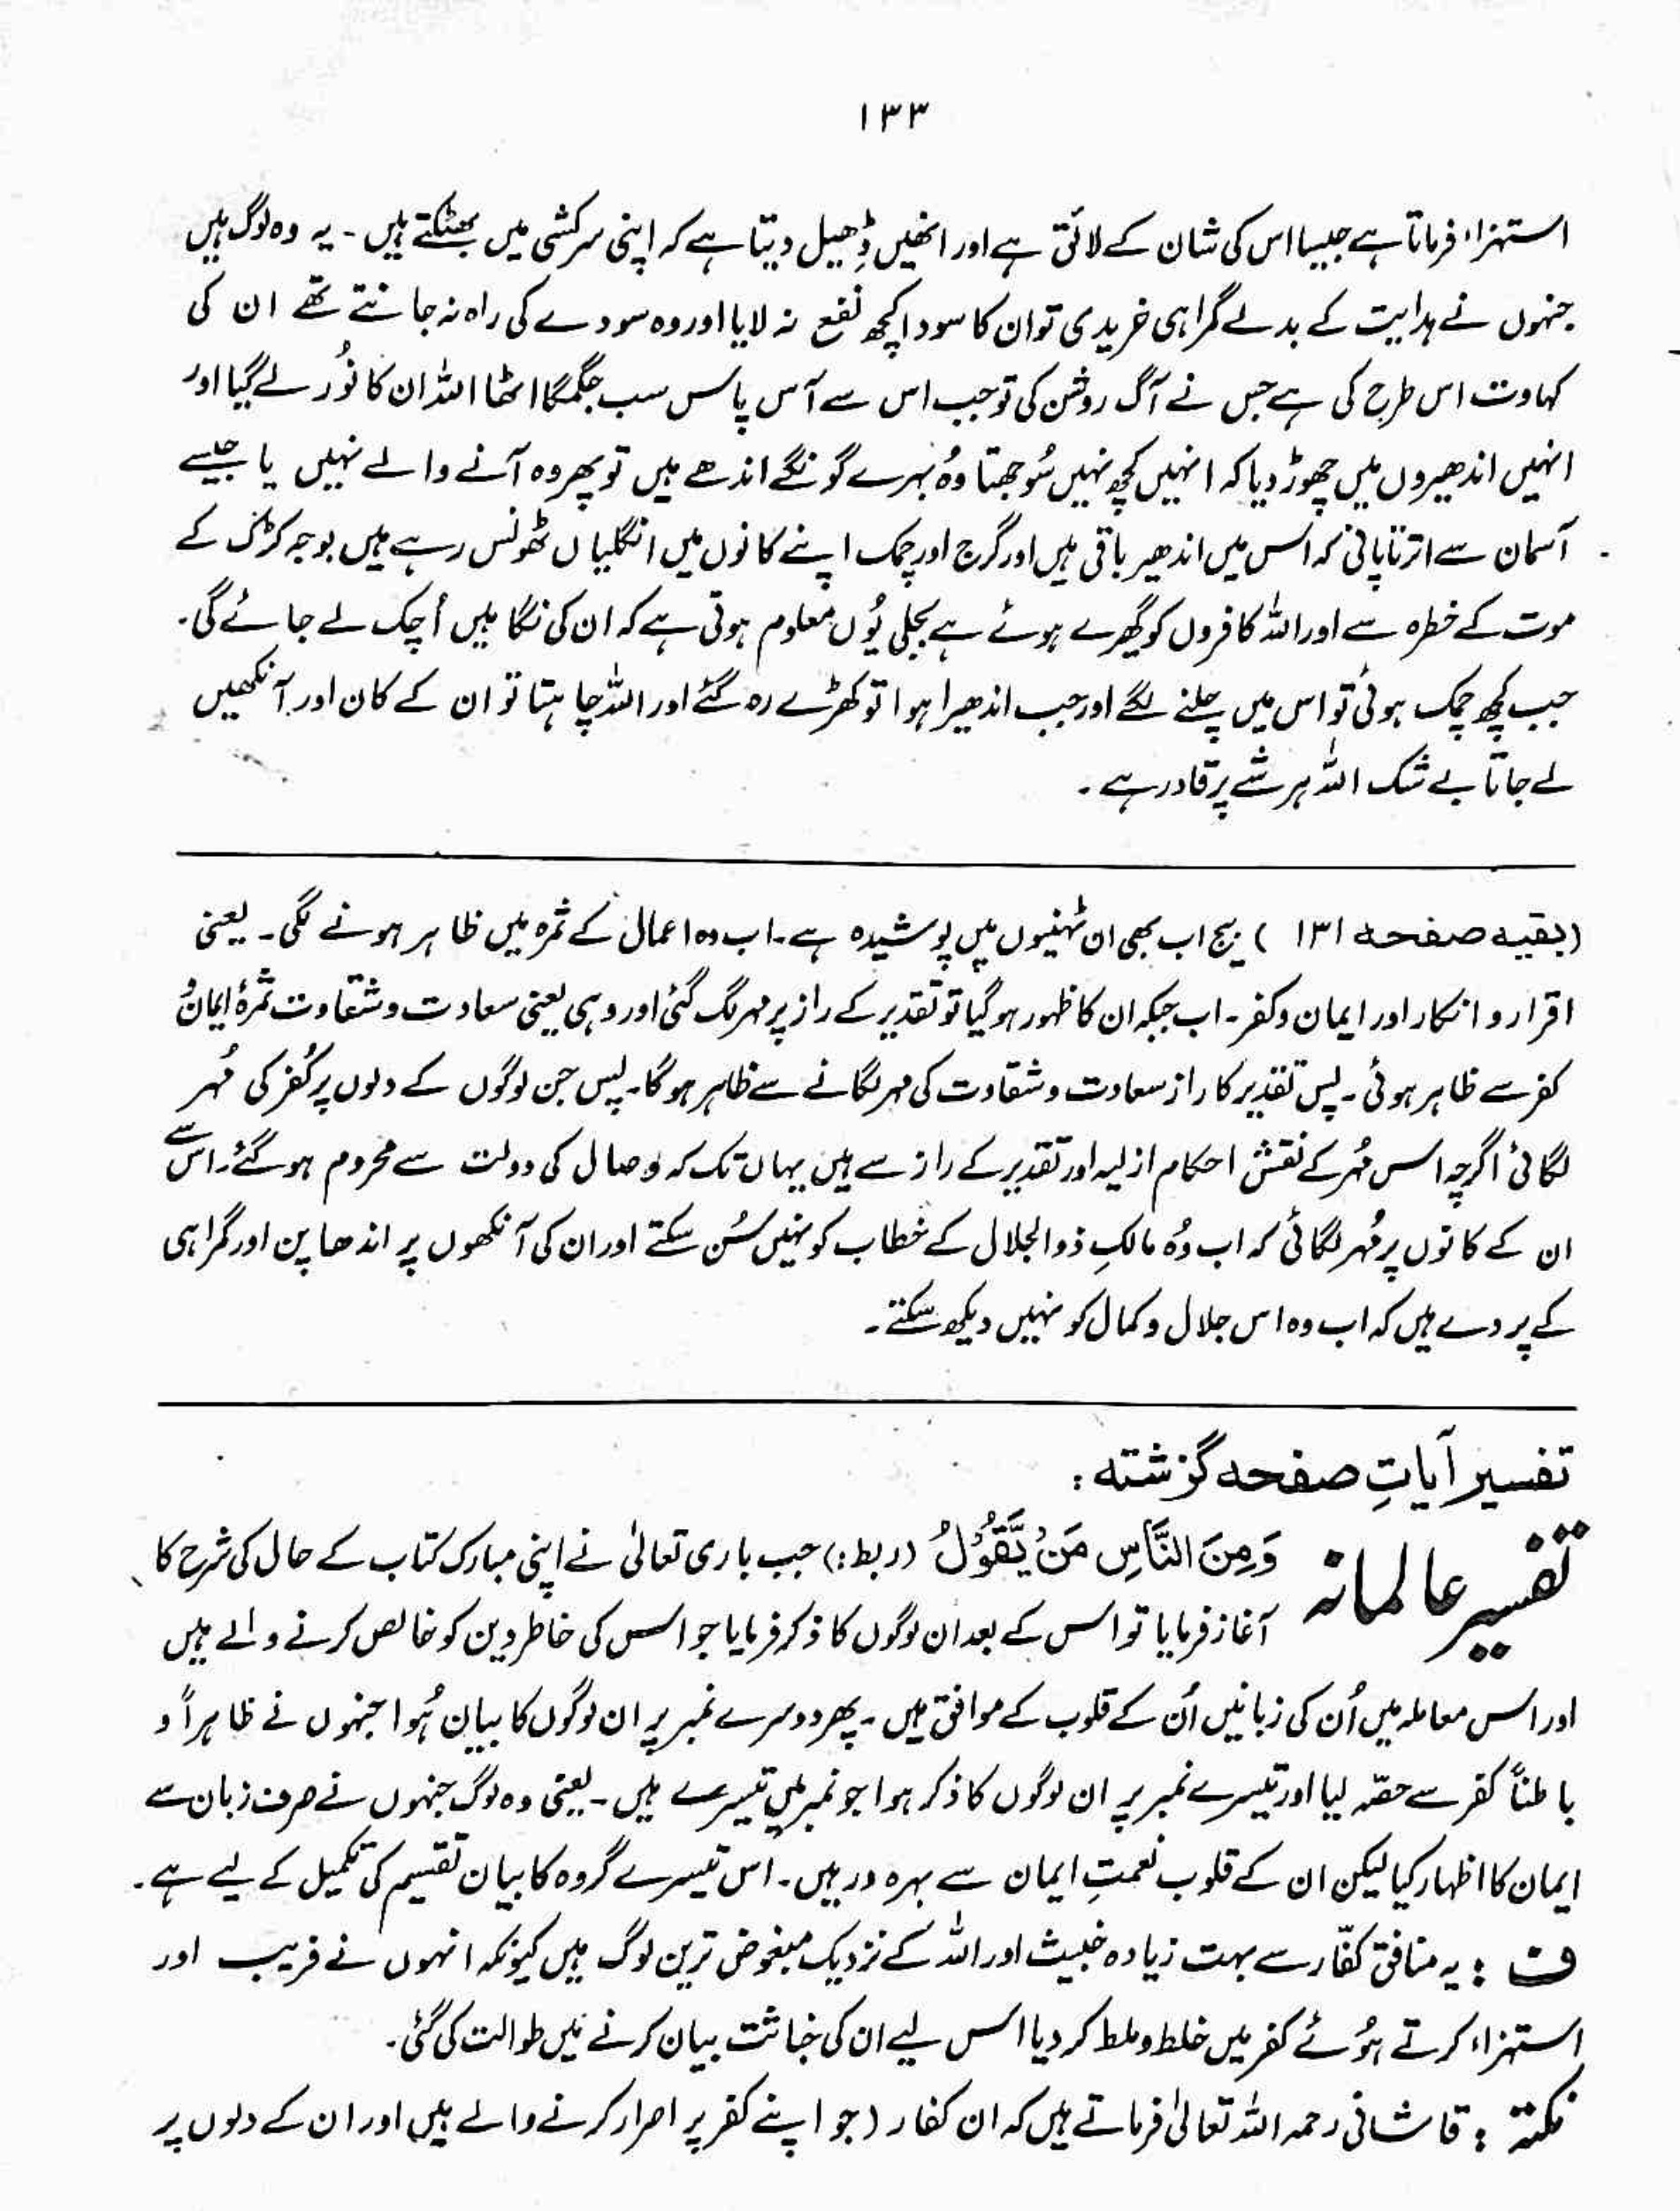 ۱۳۳
استہزاء فرماتا ہے جیسا اس کی شان کے لائق ہے اور انھیں ڈِھیل دیتا ہے کہ اپنی سرکشی میں بھٹکتے ہیں - یہ وہ لوگ ہیں
جنہوں نے ہدایت کے بدلے گمراہی خریدی تو ان کا سودا کچھ نفع نہ لایا اور وہ سودے کی راہ نہ جانتے تھے ان کی
کہاوت اس طرح کی ہے جس نے آگ روشن کی تو جب اس سے آس پاس سب جگمگا اٹھا اللہ ان کا نُور لے گیا اور
انہیں اندھیروں میں چھوڑ دیا کہ انہیں کچھ نہیں سُوجھتا وُہ بہرے گونگے اندھے ہیں تو پھر وہ آنے والے نہیں یا جیسے
آسمان سے اترتا پانی کہ اس میں اندھیر باقی ہیں اور گرج اور چمک اپنے کانوں میں انگلیاں ٹھونس رہے ہیں بوجہ کڑک کے
موت کے خطرہ سے اور اللہ کافروں کو گھیرے ہوئے ہے بجلی یُوں معلوم ہوتی ہے کہ ان کی نگاہیں اُچک لے جائے گی۔
جب کچھ چمک ہوئی تو اس میں چلنے لگے اور جب اندھیرا ہوا تو کھڑے رہ گئے اور اللہ چاہتا تو ان کے کان اور آنکھیں
لے جاتا بے شک اللہ ہر شے پر قادر ہے ۔
(بقیہ صفحہ ۱۳۱ ) بیج اب بھی ان ٹہنیوں میں پوشیدہ ہے۔ اب وہ اعمال کے ثمرہ میں ظاہر ہونے لگی۔ یعنی
اقرار و انکار اور ایمان و کفر۔ اب جبکہ ان کا ظہور ہو گیا تو تقدیر کے راز پر مہر لگ گئی اور وہی یعنی سعادت و شقاوت ثمرۂ ایمان و
کفر سے ظاہر ہوئی ۔ پس تقدیر کا راز سعادت و شقاوت کی مہر لگانے سے ظاہر ہوگا۔ پس جن لوگوں کے دلوں پر کُفر کی مُہر
لگائی اگرچہ اس مُہر کے نقش احکام ازلیہ اور تقدیر کے راز سے ہیں یہاں تک کہ وصال کی دولت سے محروم ہو گئے۔ اس سے
ان کے کانوں پر مُہر لگائی کہ اب وُہ مالکِ ذوالجلال کے خطاب کو نہیں سُن سکتے اور ان کی آنکھوں پر اندھا پن اور گمراہی
کے پردے ہیں کہ اب وہ اس جلال و کمال کو نہیں دیکھ سکتے ۔
تفسیر آیاتِ صفحہ گزشتہ :
تفسیر عالمانہ وَمِنَ النَّاسِ مَنْ یَّقُوْلُ (ربط :) جب باری تعالیٰ نے اپنی مبارک کتاب کے حال کی شرح کا
آغاز فرمایا تو اس کے بعد ان لوگوں کا ذکر فرمایا جو اس کی خاطر دین کو خالص کرنے والے ہیں
اور اس معاملہ میں اُن کی زبانیں اُن کے قلوب کے موافق ہیں ۔ پھر دوسرے نمبر پر ان لوگوں کا بیان ہُوا جنہوں نے ظاہراً و
باطناً کفر سے حصّہ لیا اور تیسرے نمبر پر ان لوگوں کا ذکر ہوا جو نمبر میں تیسرے ہیں ۔ یعنی وہ لوگ جنہوں نے صرف زبان سے
ایمان کا اظہار کیا لیکن ان کے قلوب نعمتِ ایمان سے بہرہ ور ہیں ۔ اس تیسرے گروہ کا بیان تقسیم کی تکمیل کے لیے ہے ۔
ف : یہ منافق کفّار سے بہت زیادہ خبیث اور اللہ کے نزدیک مبغوض ترین لوگ ہیں کیونکہ انہوں نے فریب اور
استہزاء کرتے ہُوئے کفر میں خلط و ملط کر دیا اس لیے ان کی خباثت بیان کرنے میں طوالت کی گئی ۔
نکتہ : قاشانی رحمہ اللہ تعالیٰ فرماتے ہیں کہ ان کفار (جو اپنے کفر پر اصرار کرنے والے ہیں اور ان کے دلوں پر